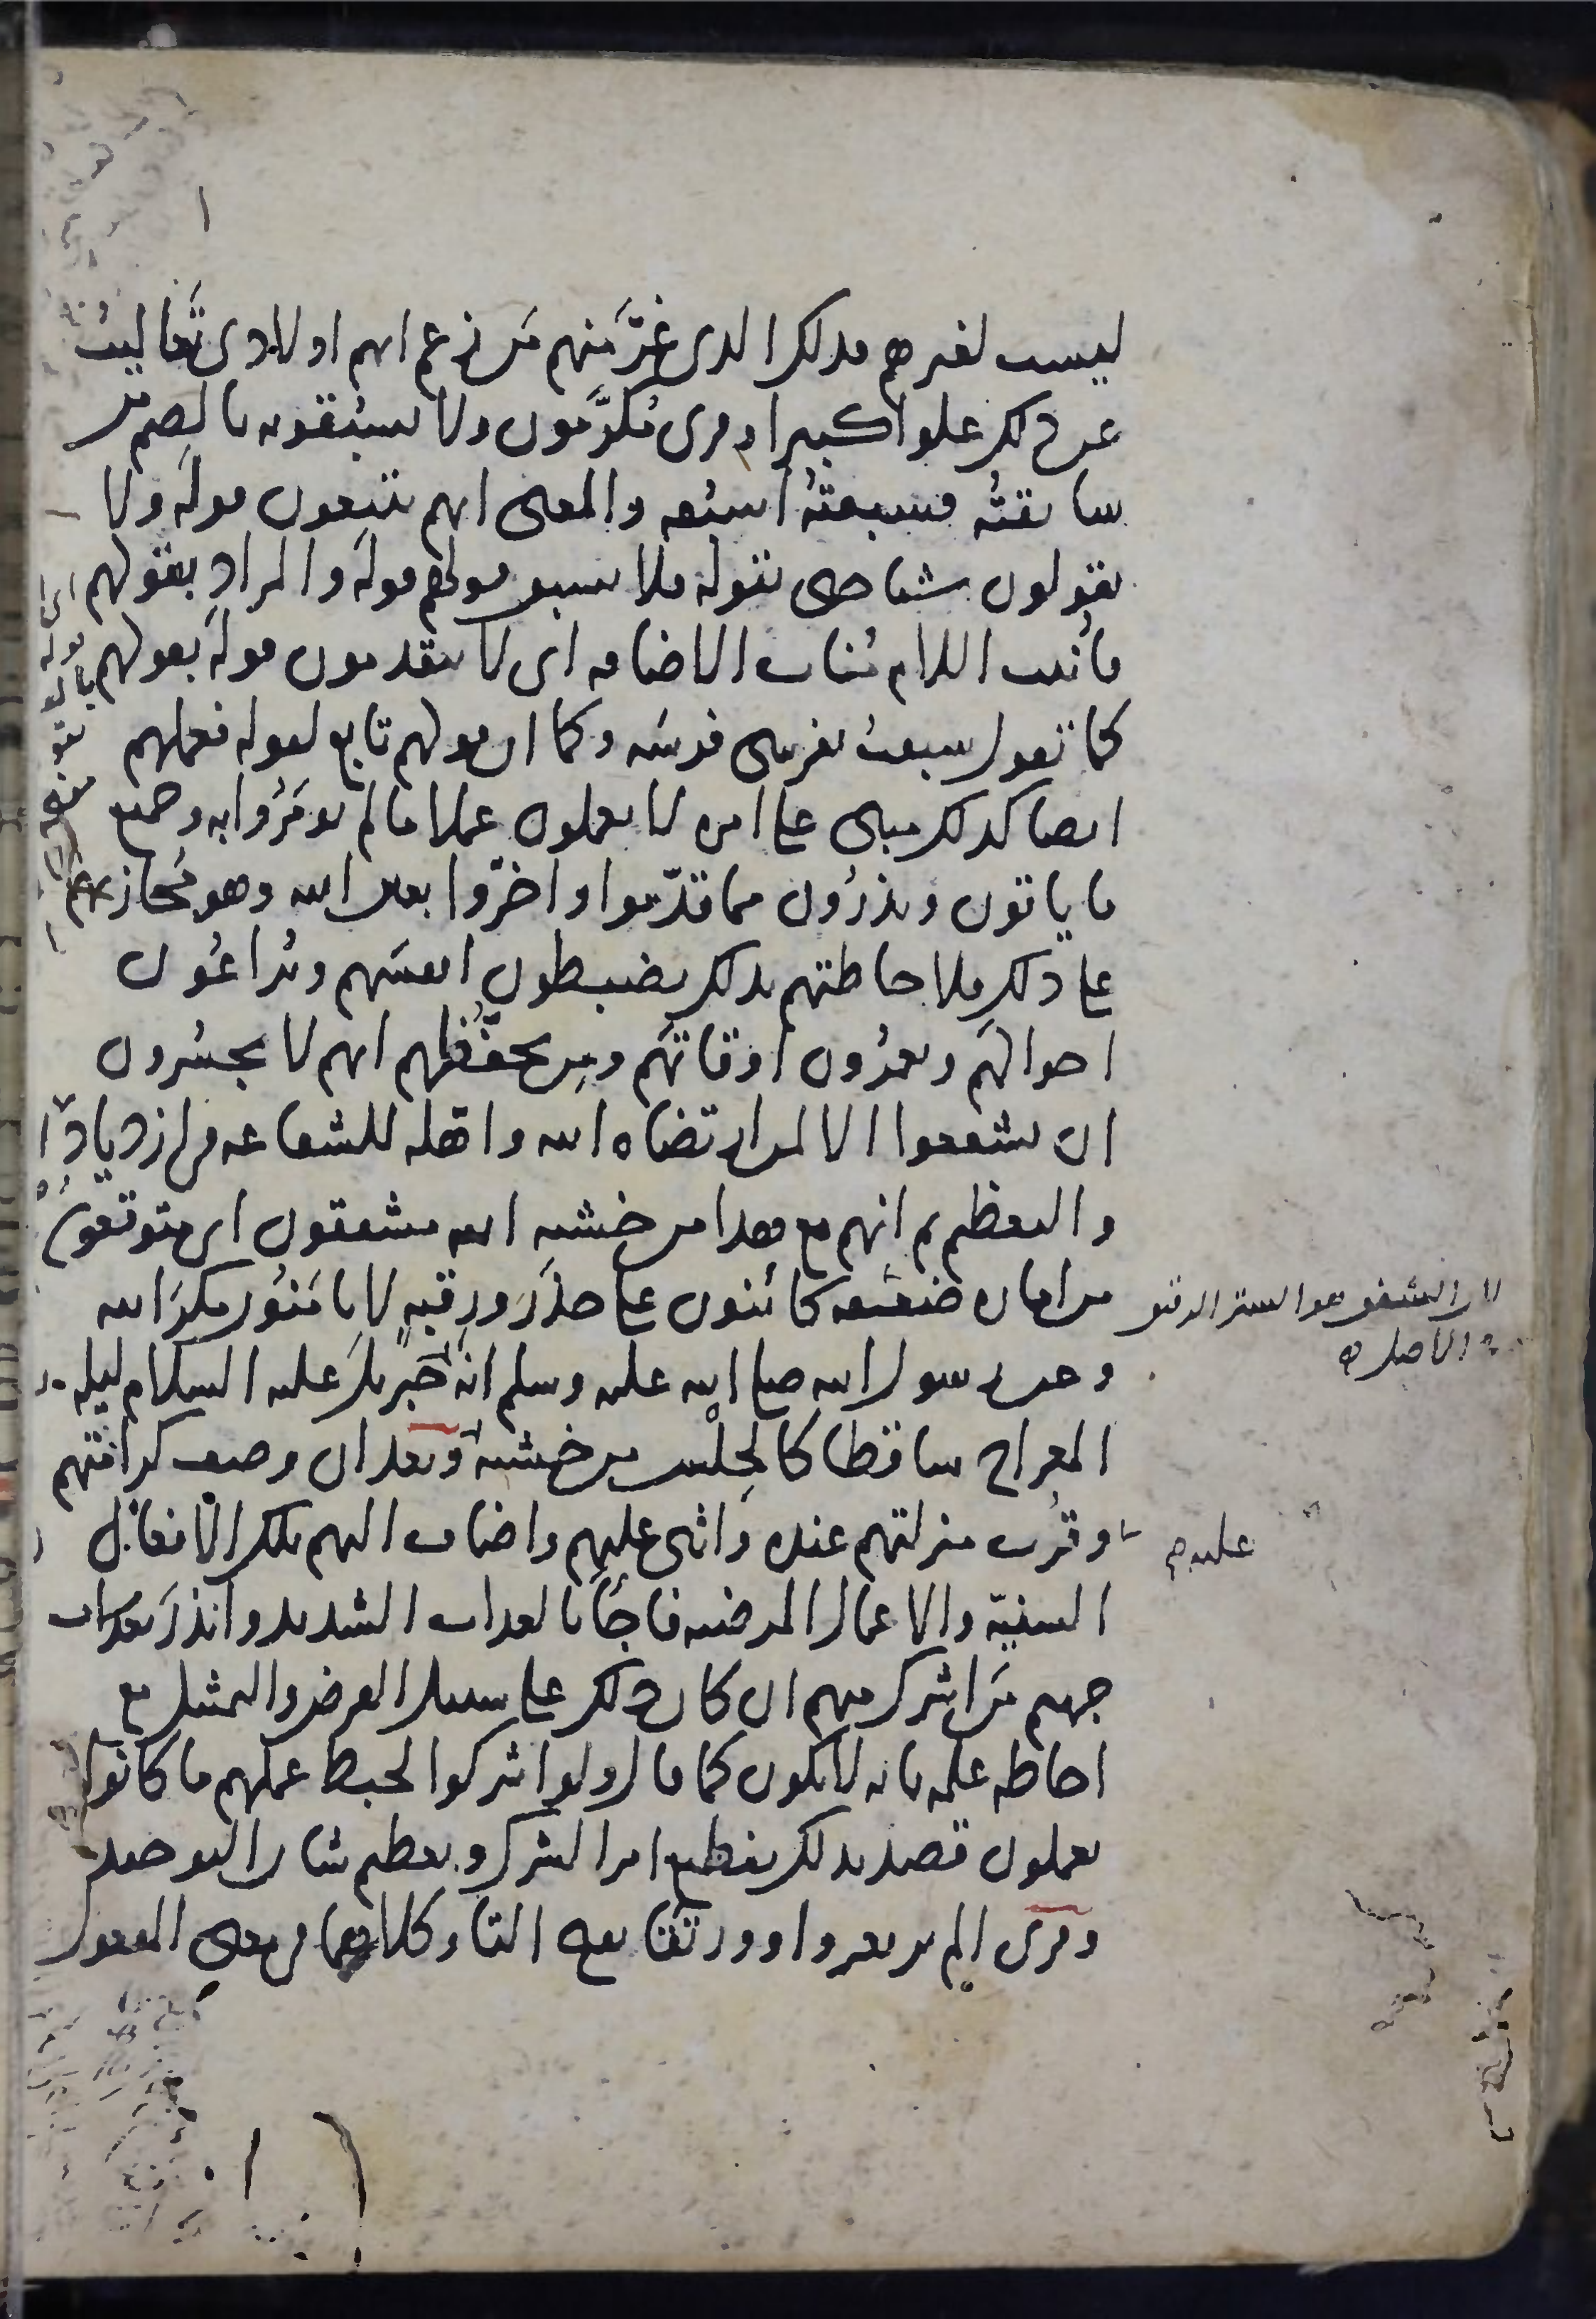 ليست لغيرهم فذلك الذى غرَّ منهم مَن زعم انهم اولادى تعاليتُ
عن ذلك علوا كبيرا وقرى مُكرَّمون ولا يسبُقونه بالضم من
سابقتُه فسبقتُه اسبُقه والمعنى انهم يتبعون قوله ولا
يقولون شيا حتى يقوله فلا يسبق قولهم قوله والمراد بقولهم
فأنيب اللام مُناب الاضافه اى لا يتقدمون قوله بقولهم
كما تقول سبقتُ بفرسى فرسَه وكما ان قولهم تابع لقوله فعملهم
ايضا كذلك مبنى على امره لا يعملون عملا ما لم يومَرُوا به وجميع
ما ياتون ويذرُون مما قدّموا واخّروا بعين الله وهو مُجازيهم
على ذلك فلاحاطتهم بذلك يضبطون انفسَهم ويُراعُون
احوالهَم ويعمُرُون اوقاتهَم ومِن تحفُّظهم انهم لا يجسُرون
ان يشفعوا الا لمن ارتضاه الله واهّله للشفاعه فى ازدياد
والتعظيم ثم انهم مع هذا من خشيه الله مشفقون اى متوقعون
من اماره ضعيفه كائنون على حذَر ورِقبهٍ لا يا مَنُون مكرَ الله
لان الشفق هو الستر الدقيق
فى الاصل
وعن رسول الله صلى الله عليه وسلم انه راى جبريلَ عليه السلام ليله
المعراج ساقطا كالحِلْس من خشيه الله وبعد ان وصف كرامتهم
وقُرب منزلتهم عنده واثنى عليهم واضاف اليهم تلك الافعال
عليهم
السنيّة والاعمال المرضيه فاجَأ بالعذاب الشديد وانذرَ بعذاب
جهنم مَن اشرك منهم ان كان ذلك على سبيل الفرض والتمثيل مع
احاطه علمه بانه لا يكون كما قال ولو اشركوا لحبط عملهم ما كانوا
يعملون قصد بذلك تفظيع امر الشرك وتعظيم شان التوحيد
وقرى الم ير بغير واو ورتَقًا بفتح التا وكلاهما فى معنى المفعول